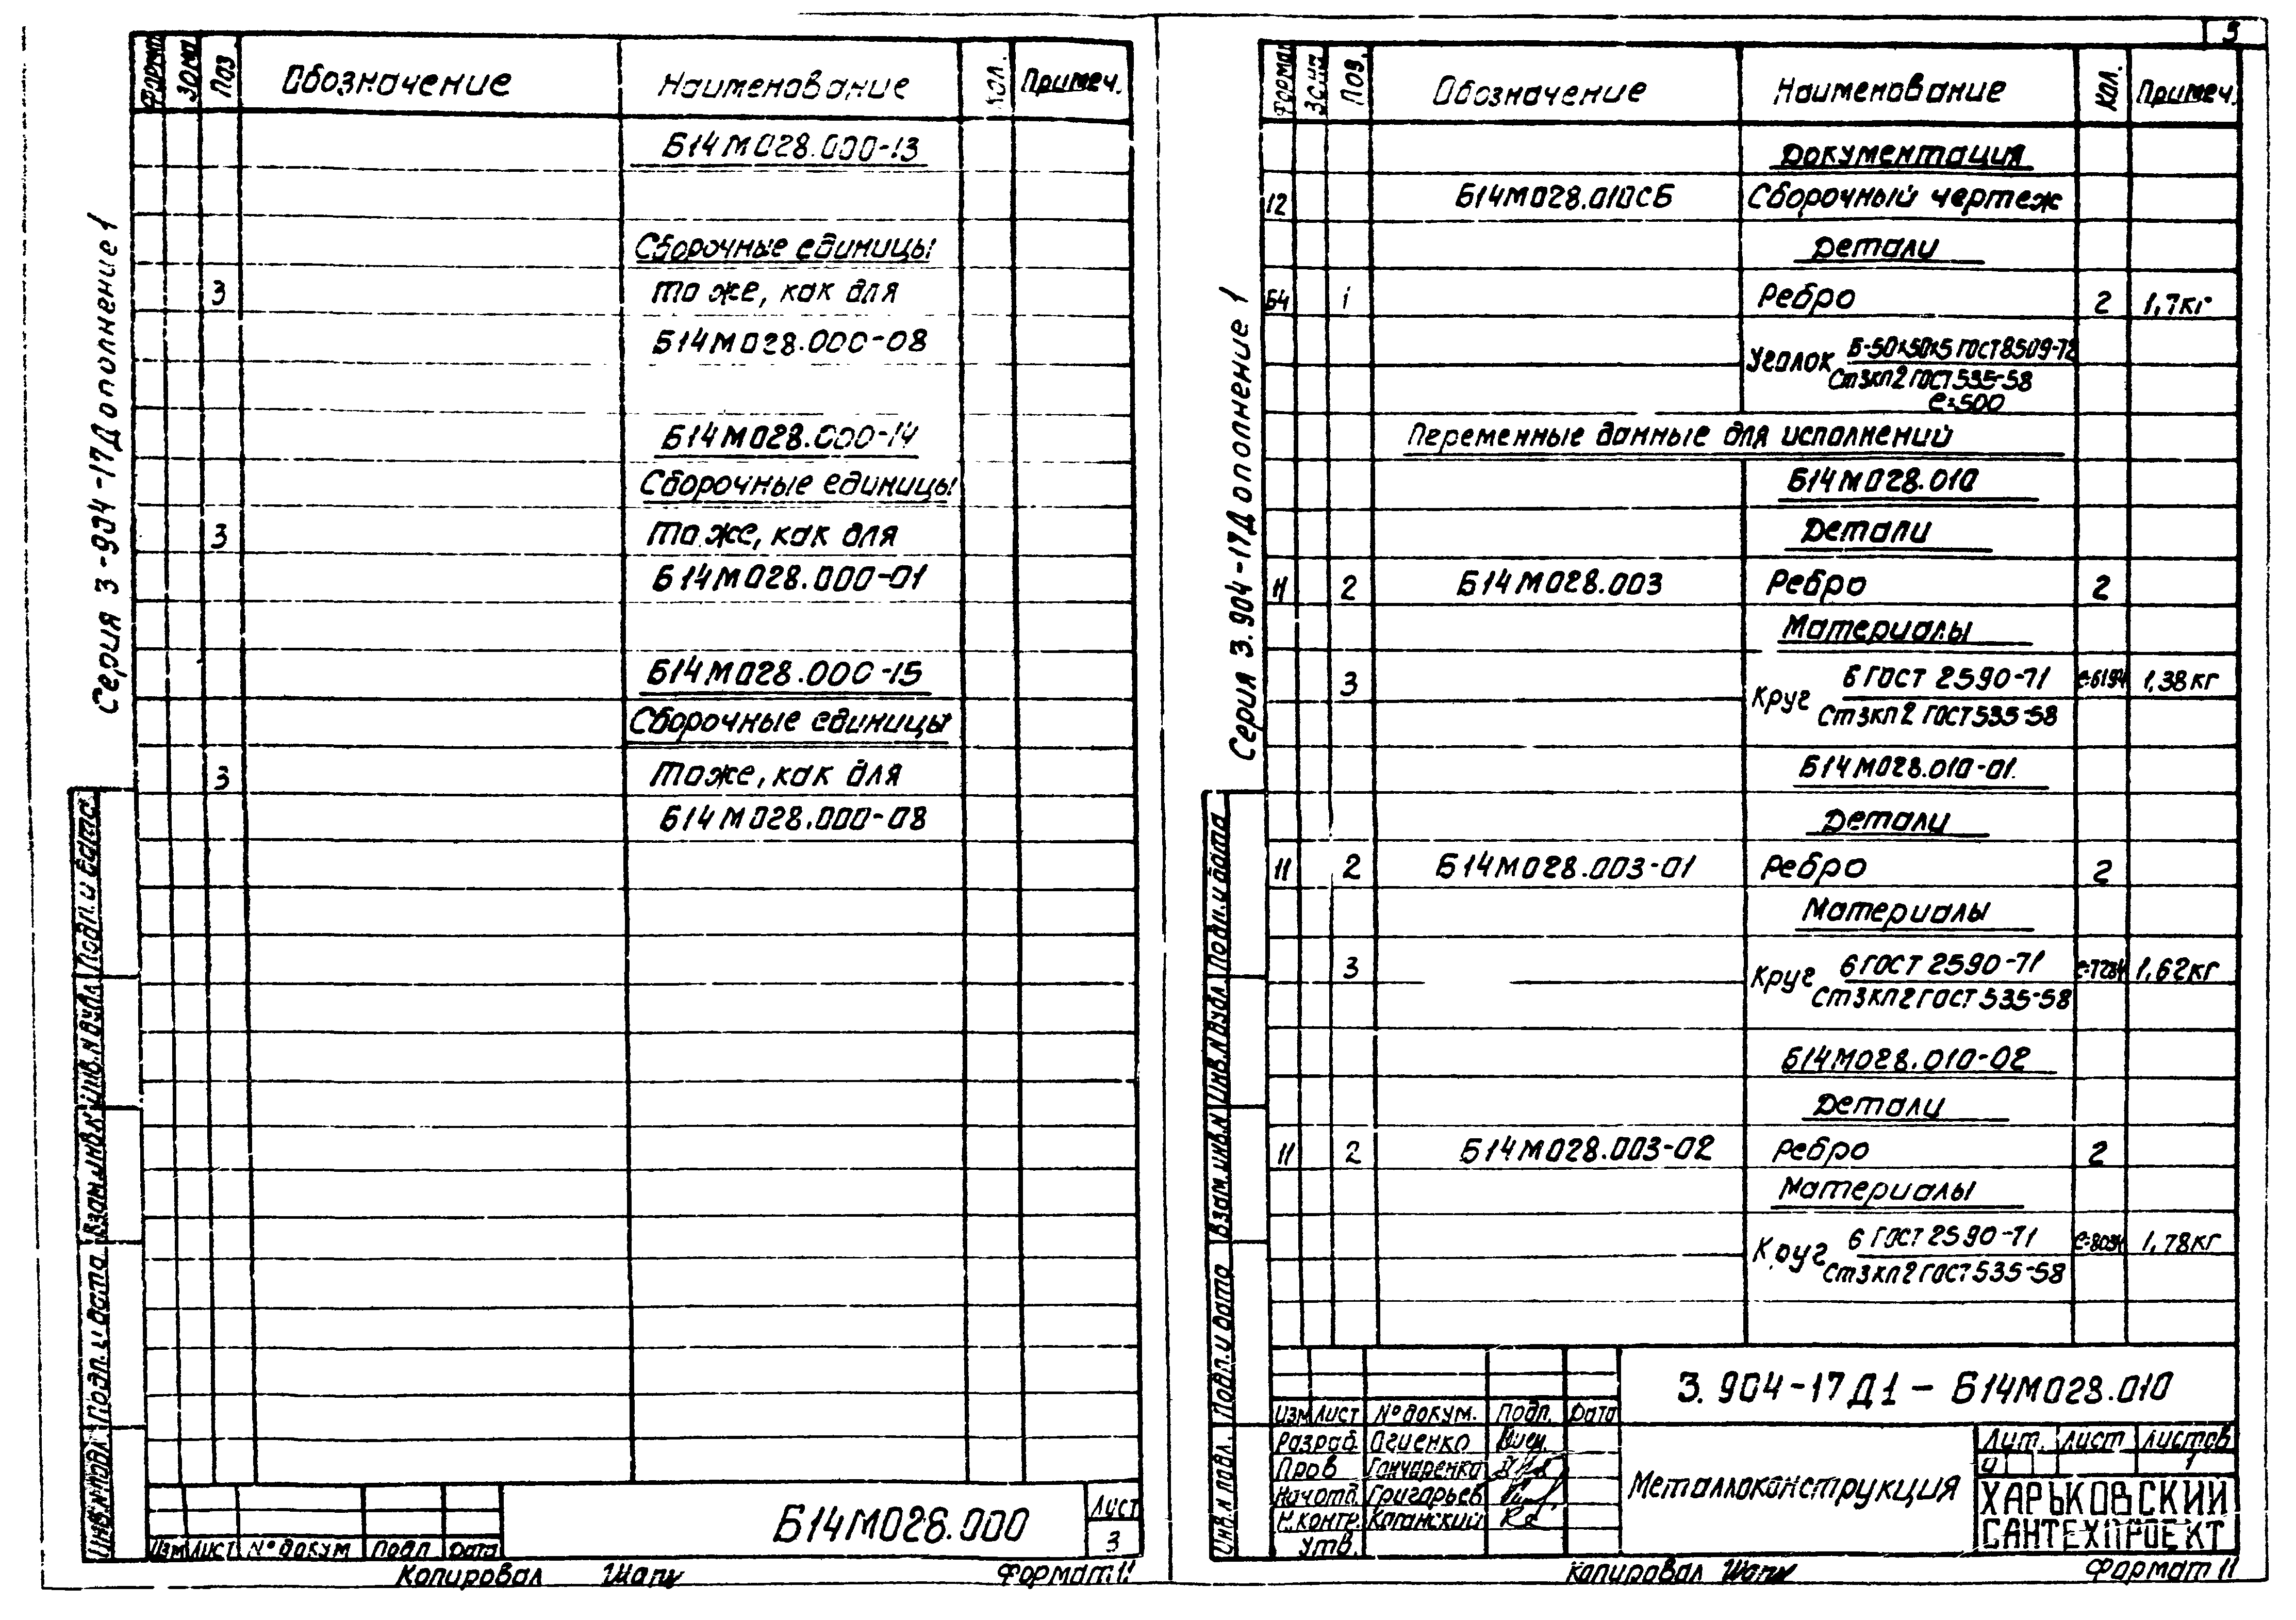 Формат Зона Поз Обозначение Наименование Кол. Примеч.
Б14М028.000-13
Сборочные единицы
3 то же, как для
Б14М028.000-08
Б14М028.000-14
Сборочные единицы
3 то же, как для
Б14М028.000-01
Б14М028.000-15
Сборочные единицы
3 то же, как для
Б14М028.000-08
Серия 3-904-17Дополнение 1
Подп. и дата
Инв.№ дубл.
Взам. инв.№
Подп. и дата
Инв.№ подл.
Изм Лист № докум Подп Дата
Б14М028.000
Лист
3
Копировал Формат 11
5
Формат Зона Поз. Обозначение Наименование Кол. Примеч.
Документация
12 Б14М028.010СБ Сборочный чертеж
Детали
Б4 1 Ребро 2 1,7кг
Уголок Б-50х50х5 ГОСТ 8509-72
Ст3кп2 ГОСТ 535-58
ℓ=500
Переменные данные для исполнений
Б14М028.010
Детали
11 2 Б14М028.003 Ребро 2
Материалы
3 Круг 6 ГОСТ 2590-71 ℓ=6194 1,38кг
Ст3кп2 ГОСТ 535-58
Б14М028.010-01.
Детали
11 2 Б14М028.003-01 Ребро 2
Материалы
3 Круг 6 ГОСТ 2590-71 ℓ=7284 1,62кг
Ст3кп2 ГОСТ 535-58
Б14М028.010-02
Детали
11 2 Б14М028.003-02 Ребро 2
Материалы
Круг 6 ГОСТ 2590-71 1,78кг
Ст3кп2 ГОСТ 535-58
Серия 3.904-17Дополнение 1
Подп. и дата
Инв.№ дубл
Взам. инв.№
Подп. и дата
Инв.№ подл.
3.904-17Д1-Б14М028.010
Изм Лист № докум. Подп. Дата
Разраб. Огиенко
Пров Гончаренко
Нач.отд. Григорьев
Н.контр. Каганский
Утв.
Металлоконструкция
Лит. Лист Листов
И 1
ХАРЬКОВСКИЙ
САНТЕХПРОЕКТ
Копировал Формат 11